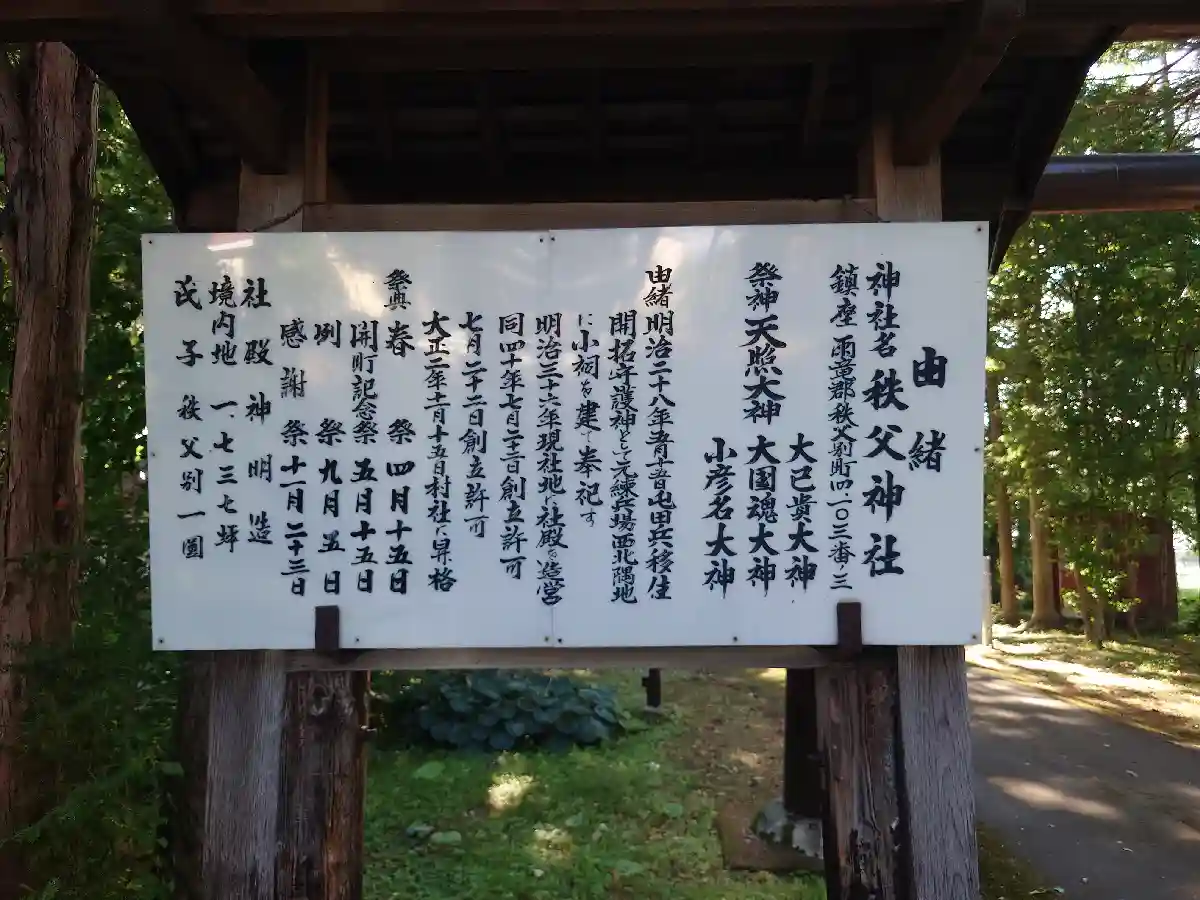 由緒
神社名 秩父神社
鎮座 雨竜郡秩父別町四一〇三番ノ三
祭神 天照大神 大国魂大神 大己貴大神
小彦名大神
由緒 明治二十八年五月十五日屯田兵移住
開拓守護神として元練兵場西北隅地
に小祠を建て奉祀す
明治三十六年現社地に社殿を造営
同四十年七月二十二日創立許可
七月二十二日創立許可
大正二年十一月十五日村社に昇格
祭典 春祭 四月十五日
開町記念祭 五月十五日
例祭 九月五日
感謝祭 十一月二十三日
社殿 神明造
境内地 一、七三七坪
氏子 秩父別一圓